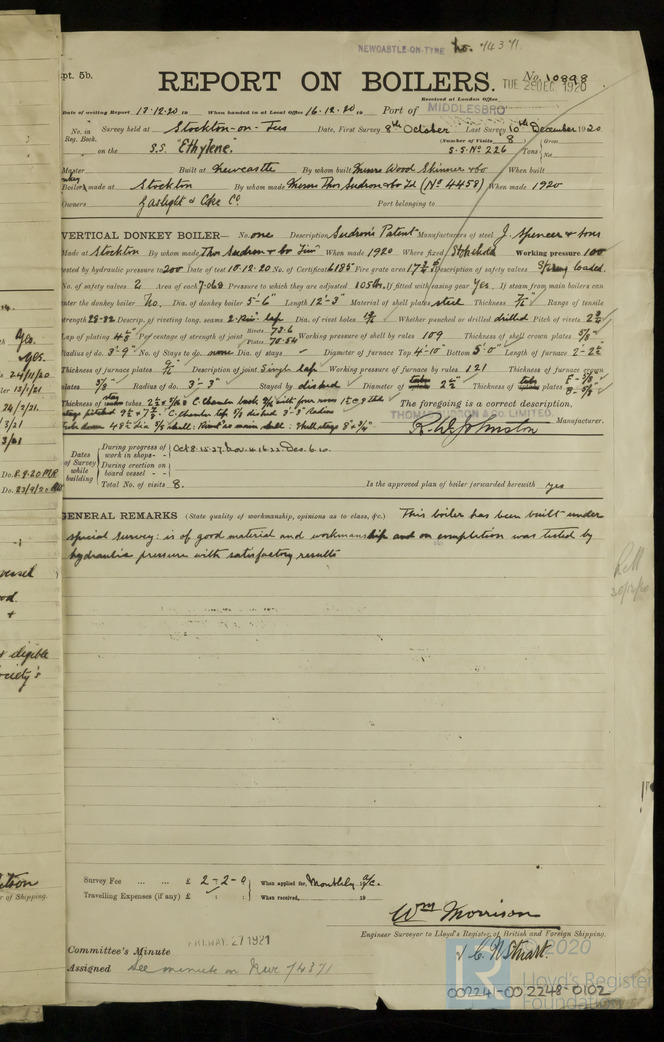 NEWCASTLE-ON-TYNE No. 74371.
pt. 5b.
REPORT ON BOILERS.
No. 10898
TUE 28 DEC 1920
Received at London Office
Date of writing Report 17.12.20 19 When handed in at Local Office 16.12.20 19 Port of MIDDLESBRO'
No. in Reg. Book. Survey held at Stockton-on-Tees Date, First Survey 8th October Last Survey 10th December 1920
(Number of Visits 8)
on the S.S. "Ethylene." S.S. No 226 Tons Gross Net
Master Built at Newcastle By whom built Messrs Wood Skinner & Co When built
Boiler made at Stockton By whom made Messrs Thos Sudron & Co Ld (No 4458) When made 1920
Owners Gaslight & Coke Co Port belonging to
VERTICAL DONKEY BOILER— No. one Description Sudron's Patent Manufacturers of steel J. Spencer & Sons
Made at Stockton By whom made Thos Sudron & Co Lim When made 1920 Where fixed Stokehold Working pressure 100
tested by hydraulic pressure to 200 Date of test 10.12.20 No. of Certificate 6185 Fire grate area Description of safety valves Spring loaded.
No. of safety valves 2 Area of each 7.068 Pressure to which they are adjusted 105 lb. If fitted with easing gear Yes. If steam from main boilers can
enter the donkey boiler No. Dia. of donkey boiler 5-6" Length 12-3" Material of shell plates steel Thickness Range of tensile
strength 28-32 Descrip. of riveting long. seams 2 Riv. lap Dia. of rivet holes Whether punched or drilled drilled Pitch of rivets
Lap of plating Per centage of strength of joint Rivets 73.6 Plates 70.54 Working pressure of shell by rules 109 Thickness of shell crown plates 5/8"
Radius of do. 3'-9" No. of Stays to do. none Dia. of stays - Diameter of furnace Top 4'-10" Bottom 5'-0" Length of furnace
Thickness of furnace plates Description of joint Single lap Working pressure of furnace by rules 121 Thickness of furnace crown
plates 5/8" Radius of do. 3'-3" Stayed by dished Diameter of tube 2½" Thickness of tube plates F-5/8" B-5/8"
Thickness of stay tubes
The foregoing is a correct description,
THOMAS SUDRON & CO. LIMITED.
R. W. Johnston Manufacturer.
Dates of Survey while building
During progress of work in shops - - Oct 8.15.27. Nov. 4.16.22. Dec. 6.10.
During erection on board vessel - -
Total No. of visits 8. Is the approved plan of boiler forwarded herewith yes
GENERAL REMARKS (State quality of workmanship, opinions as to class, &c.) This boiler has been built under
special survey: is of good material and workmanship and on completion was tested by
hydraulic pressure with satisfactory results
Survey Fee ... ... £ 2-2-0 When applied for, Monthly a/c.
Travelling Expenses (if any) £ : : When received, 19
Wm Morrison
Engineer Surveyor to Lloyd's Register of British and Foreign Shipping.
& C. N. Stuart.
Committee's Minute FRI. MAY. 27 1921
Assigned See minute on Nwc 74371
© 2020
Lloyd's Register
Foundation
002241-002248-0102